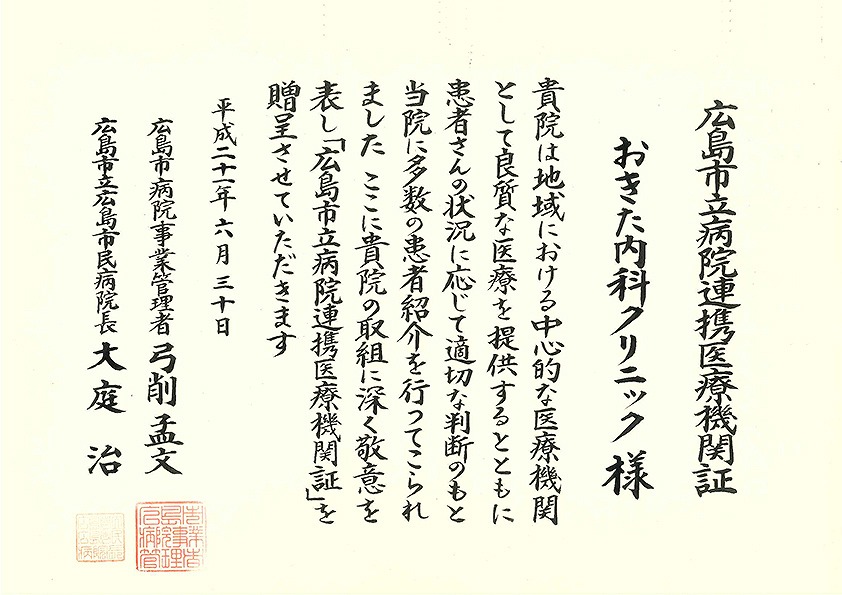 広島市立病院連携医療機関証
おきた内科クリニック様
貴院は地域における中心的な医療機関
として良質な医療を提供するとともに
患者さんの状況に応じて適切な判断のもと
当院に多数の患者紹介を行ってこられ
ました ここに貴院の取組に深く敬意を
表し「広島市立病院連携医療機関証」を
贈呈させていただきます
平成二十一年六月三十日
広島市病院事業管理者 弓削孟文
広島市立広島市民病院長 大庭 治